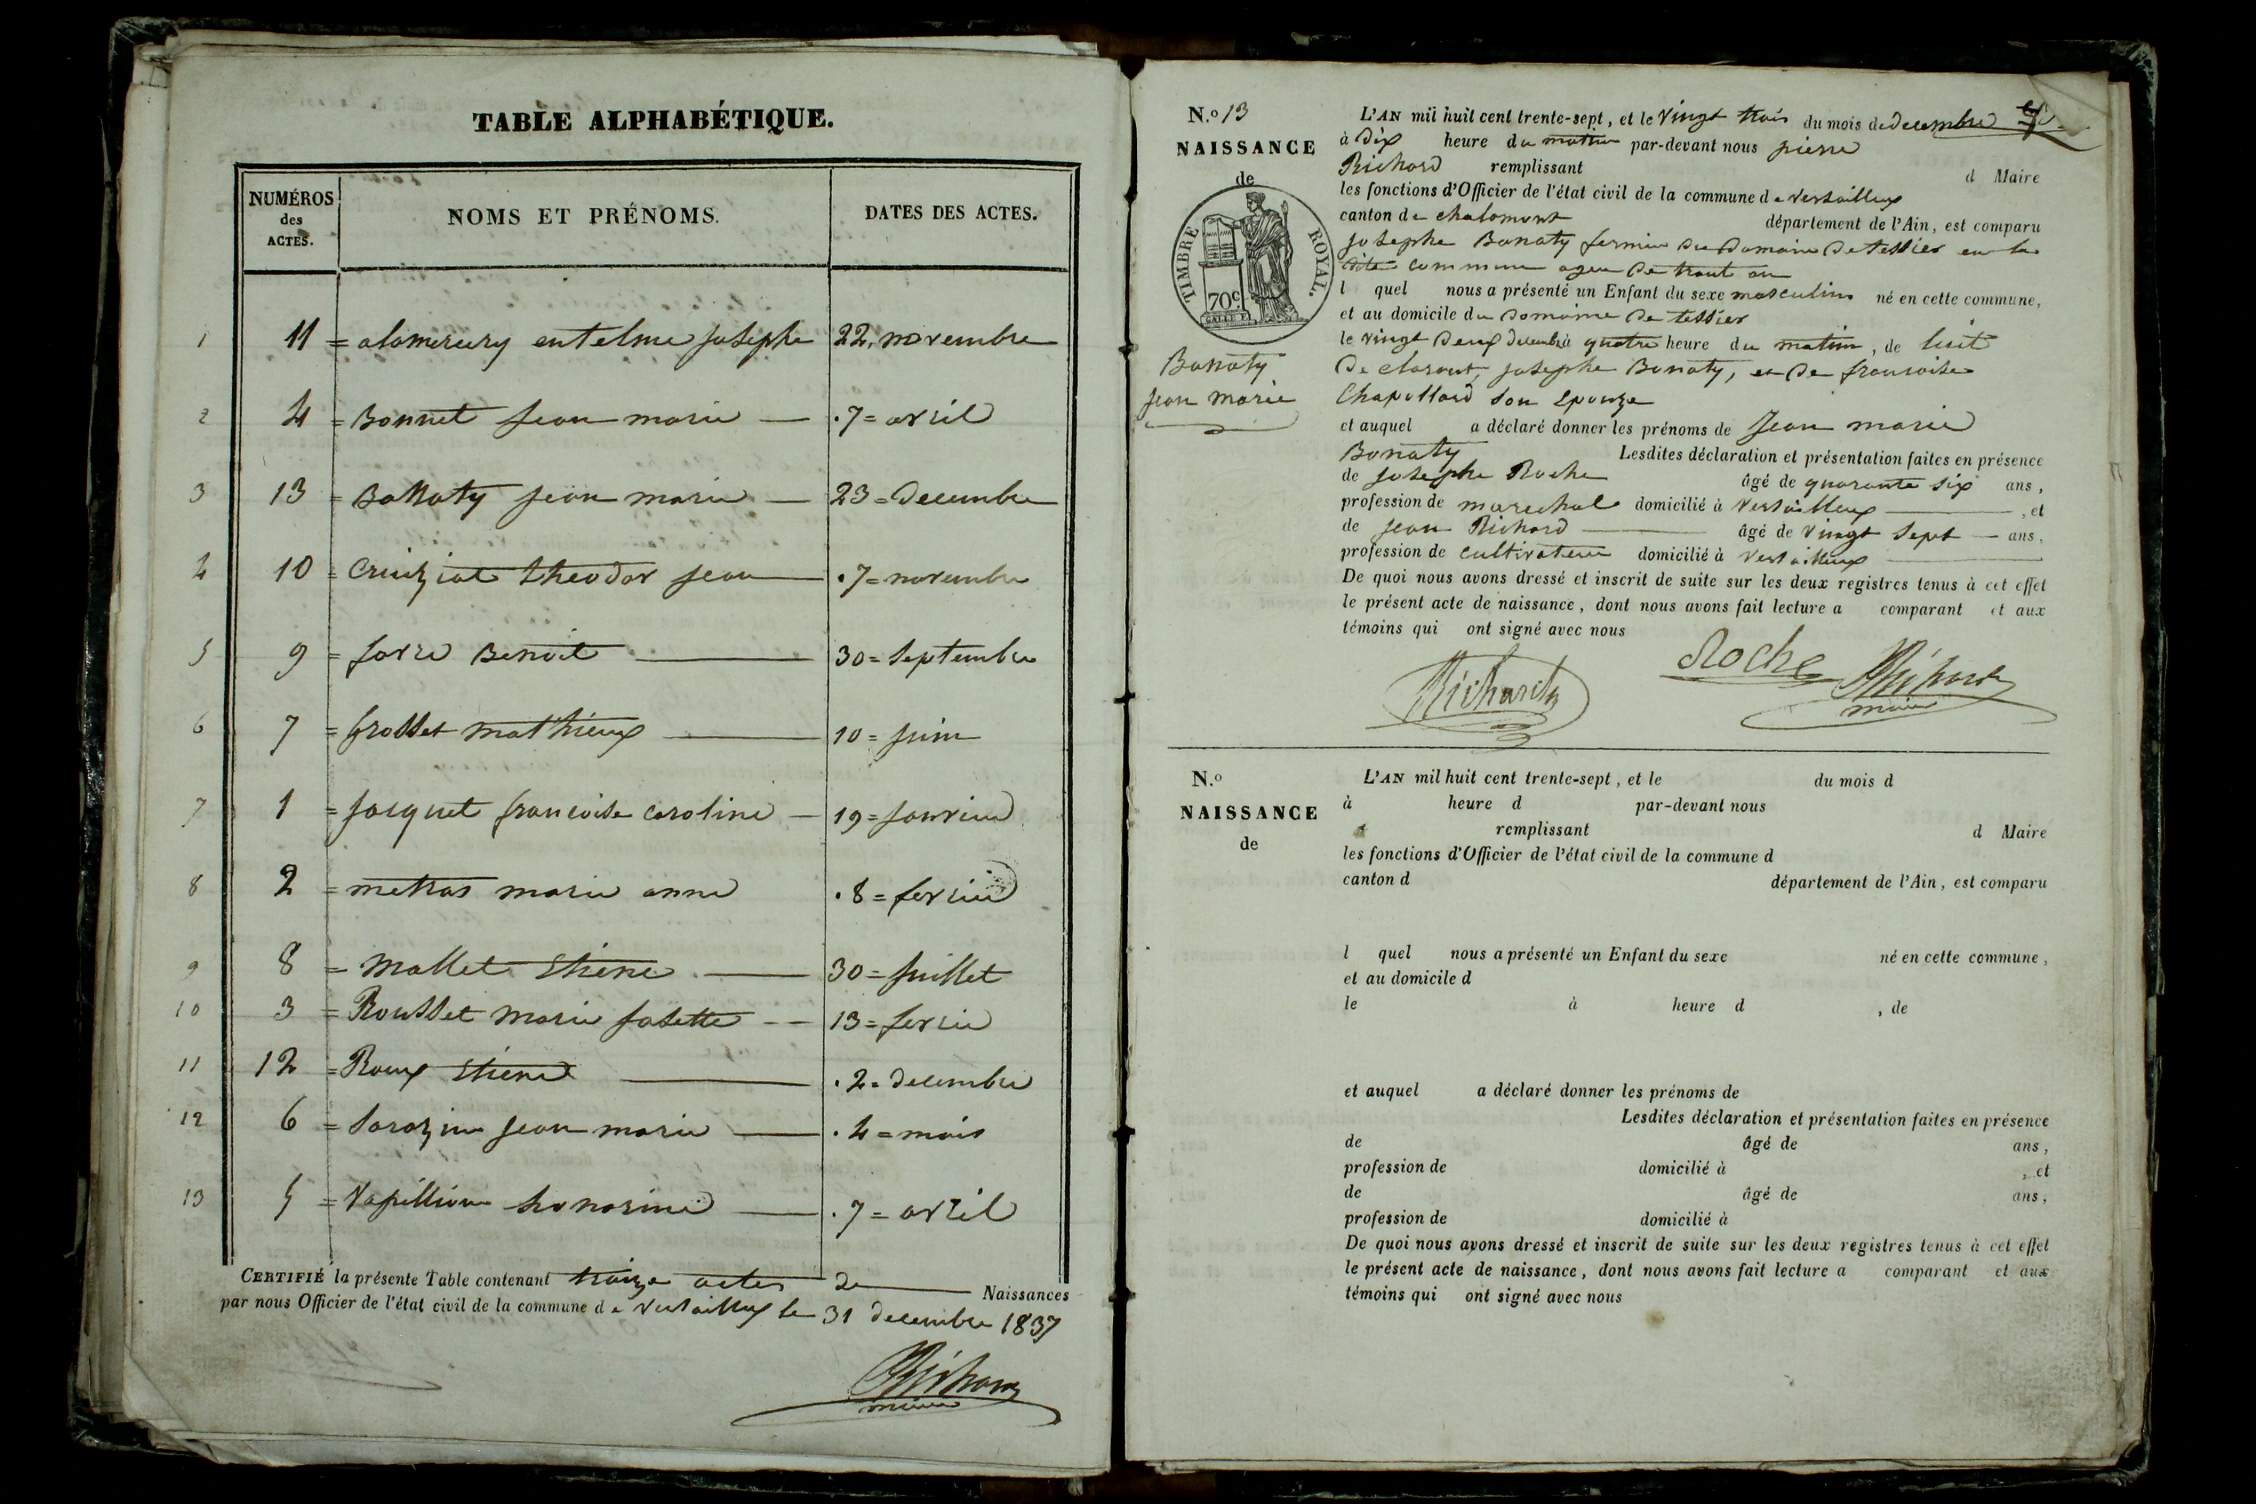 TABLE ALPHABÉTIQUE.
NUMÉROS des ACTES. NOMS ET PRÉNOMS. DATES DES ACTES.
1 11 = alamercery entelme Josephe 22, novembre
2 4 = Bonnet Jean marie — . 7 = avril
3 13 = Bonnaty Jean marie — 23 = decembre
4 10 = Cruiziat theodor Jean — . 7 = novembre
5 9 = favre Benoit — 30 = Septembre
6 7 = frosset mathieux — 10 = juin
7 1 = Jacquet francoise Caroline — 19 = Janvier
8 2 = metras marie anne . 8 = fevrier
9 8 = mallet Etiene — 30 = Juillet
10 3 = Rousset marie Josette — 13 = fevrier
11 12 = Roux Etiene — . 2 = decembre
12 6 = Sarazin Jean marie — . 4 = mais
13 5 = Vapillion honorine — . 7 = avril
CERTIFIÉ la présente Table contenant traize actes de — Naissances
par nous Officier de l'état civil de la commune de versailleux le 31 decembre 1837
Richard
maire
N.o 13
NAISSANCE
de
TIMBRE ROYAL.
70c
Bonnaty
Jean marie
L'AN mil huit cent trente-sept, et le vingt trois du mois de decembre
à dix heure du matin par-devant nous pierre
Richard remplissant d Maire
les fonctions d'Officier de l'état civil de la commune de versailleux
canton de chalamont département de l'Ain, est comparu
Josephe Bonaty fermier du domaine de tessier en la
dite commune agee de trante an
l quel nous a présenté un Enfant du sexe masculin né en cette commune,
et au domicile du domaine de tessier
le vingt deux decembre à quatre heure du matin, de luit
De clarant, Josephe Bonaty, et de francoise
Chapollard son epouze
et auquel a déclaré donner les prénoms de Jean marie
Bonaty Lesdites déclaration et présentation faites en présence
de Josephe Roche âgé de quarante six ans,
profession de marechal domicilié à versailleux —, et
de Jean Richard — âgé de vingt sept — ans,
profession de cultivateur domicilié à versailleux —
De quoi nous avons dressé et inscrit de suite sur les deux registres tenus à cet effet
le présent acte de naissance, dont nous avons fait lecture a comparant et aux
témoins qui ont signé avec nous
Richard Roche Richard
maire
N.o
NAISSANCE
de
L'AN mil huit cent trente-sept, et le du mois d
à heure d par-devant nous
remplissant d Maire
les fonctions d'Officier de l'état civil de la commune d
canton d département de l'Ain, est comparu
l quel nous a présenté un Enfant du sexe né en cette commune,
et au domicile d
le à heure d , de
et auquel a déclaré donner les prénoms de
Lesdites déclaration et présentation faites en présence
de âgé de ans,
profession de domicilié à , et
de âgé de ans,
profession de domicilié à
De quoi nous avons dressé et inscrit de suite sur les deux registres tenus à cet effet
le présent acte de naissance, dont nous avons fait lecture a comparant et aux
témoins qui ont signé avec nous